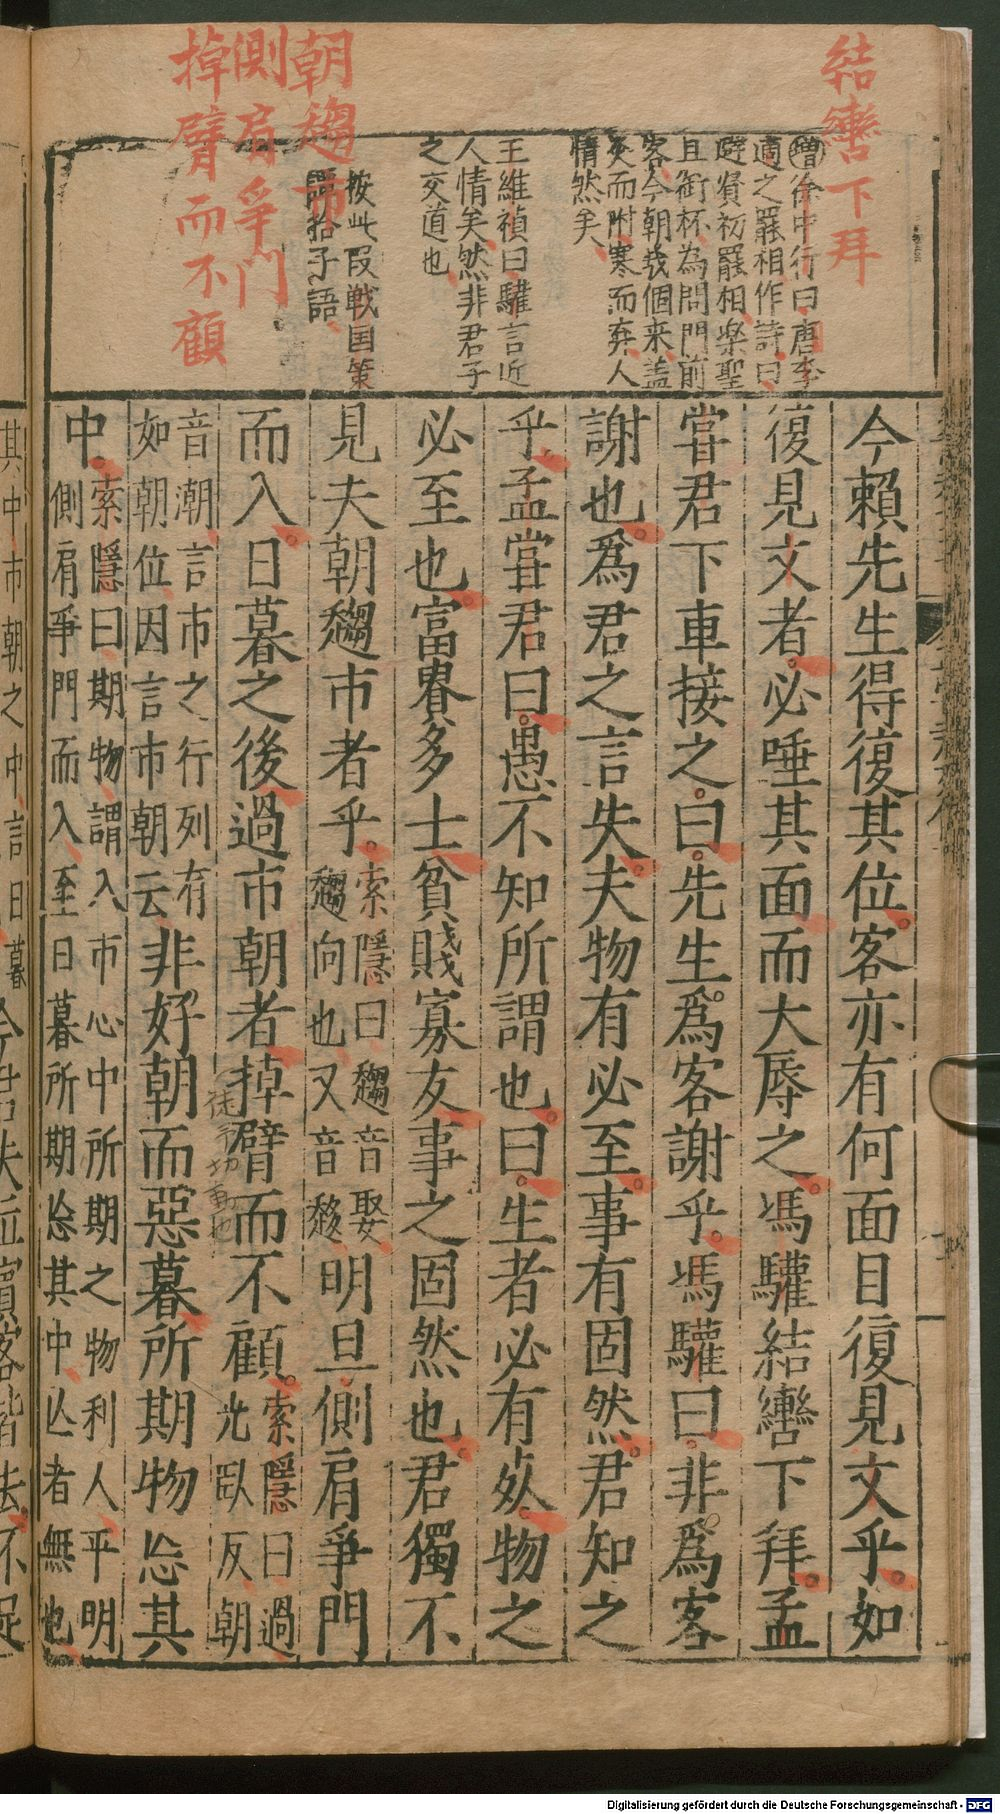 結轡下拜
朝趨市
側肩爭門
掉臂而不顧
增徐中行曰唐李
適之罷相作詩曰
避賢初罷相樂聖
且銜杯為問門前
客今朝幾個来盖
炎而附寒而弃人
情然矣
王維禎曰驩言近
人情矣然非君子
之交道也
按此段戦国策
譚拾子語
今賴先生得復其位客亦有何面目復見文乎如
復見文者必唾其面而大辱之馮驩結轡下拜孟
嘗君下車接之曰先生爲客謝乎馮驩曰非爲客
謝也爲君之言失夫物有必至事有固然君知之
乎孟嘗君曰愚不知所謂也曰生者必有死物之
必至也富貴多士貧賤寡友事之固然也君獨不
見夫朝趨市者乎
索隱曰趨音娶
趨向也又音趍
明旦側肩爭門
而入日暮之後過市朝者掉臂而不顧
徒弔切動也
索隱曰過
光臥反朝
音潮言市之行列有
如朝位因言市朝云
非好朝而惡暮所期物忘其
中
索隱曰期物謂入市心中所期之物利人平明
側肩爭門而入至日暮所期忘其中亾者無也
其中市朝之中言日暮
今君失位賓客皆去不足
Digitalisierung gefördert durch die Deutsche Forschungsgemeinschaft - DFG